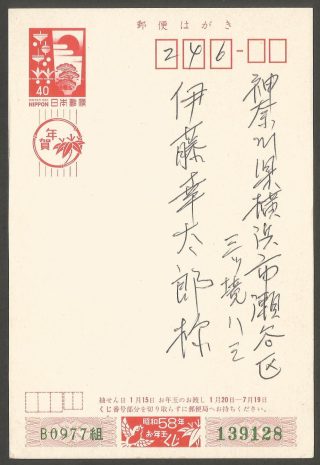 郵便はがき
246
40
NIPPON 日本郵便
年賀
神奈川県横浜市瀬谷区
三ッ境八三
伊藤幸太郎様
抽せん日 1月15日 お年玉のお渡し 1月20日─7月19日
くじ番号部分を切り取らずに郵便局へお持ちください。
B0977組
昭和58年
お年玉くじ
139128